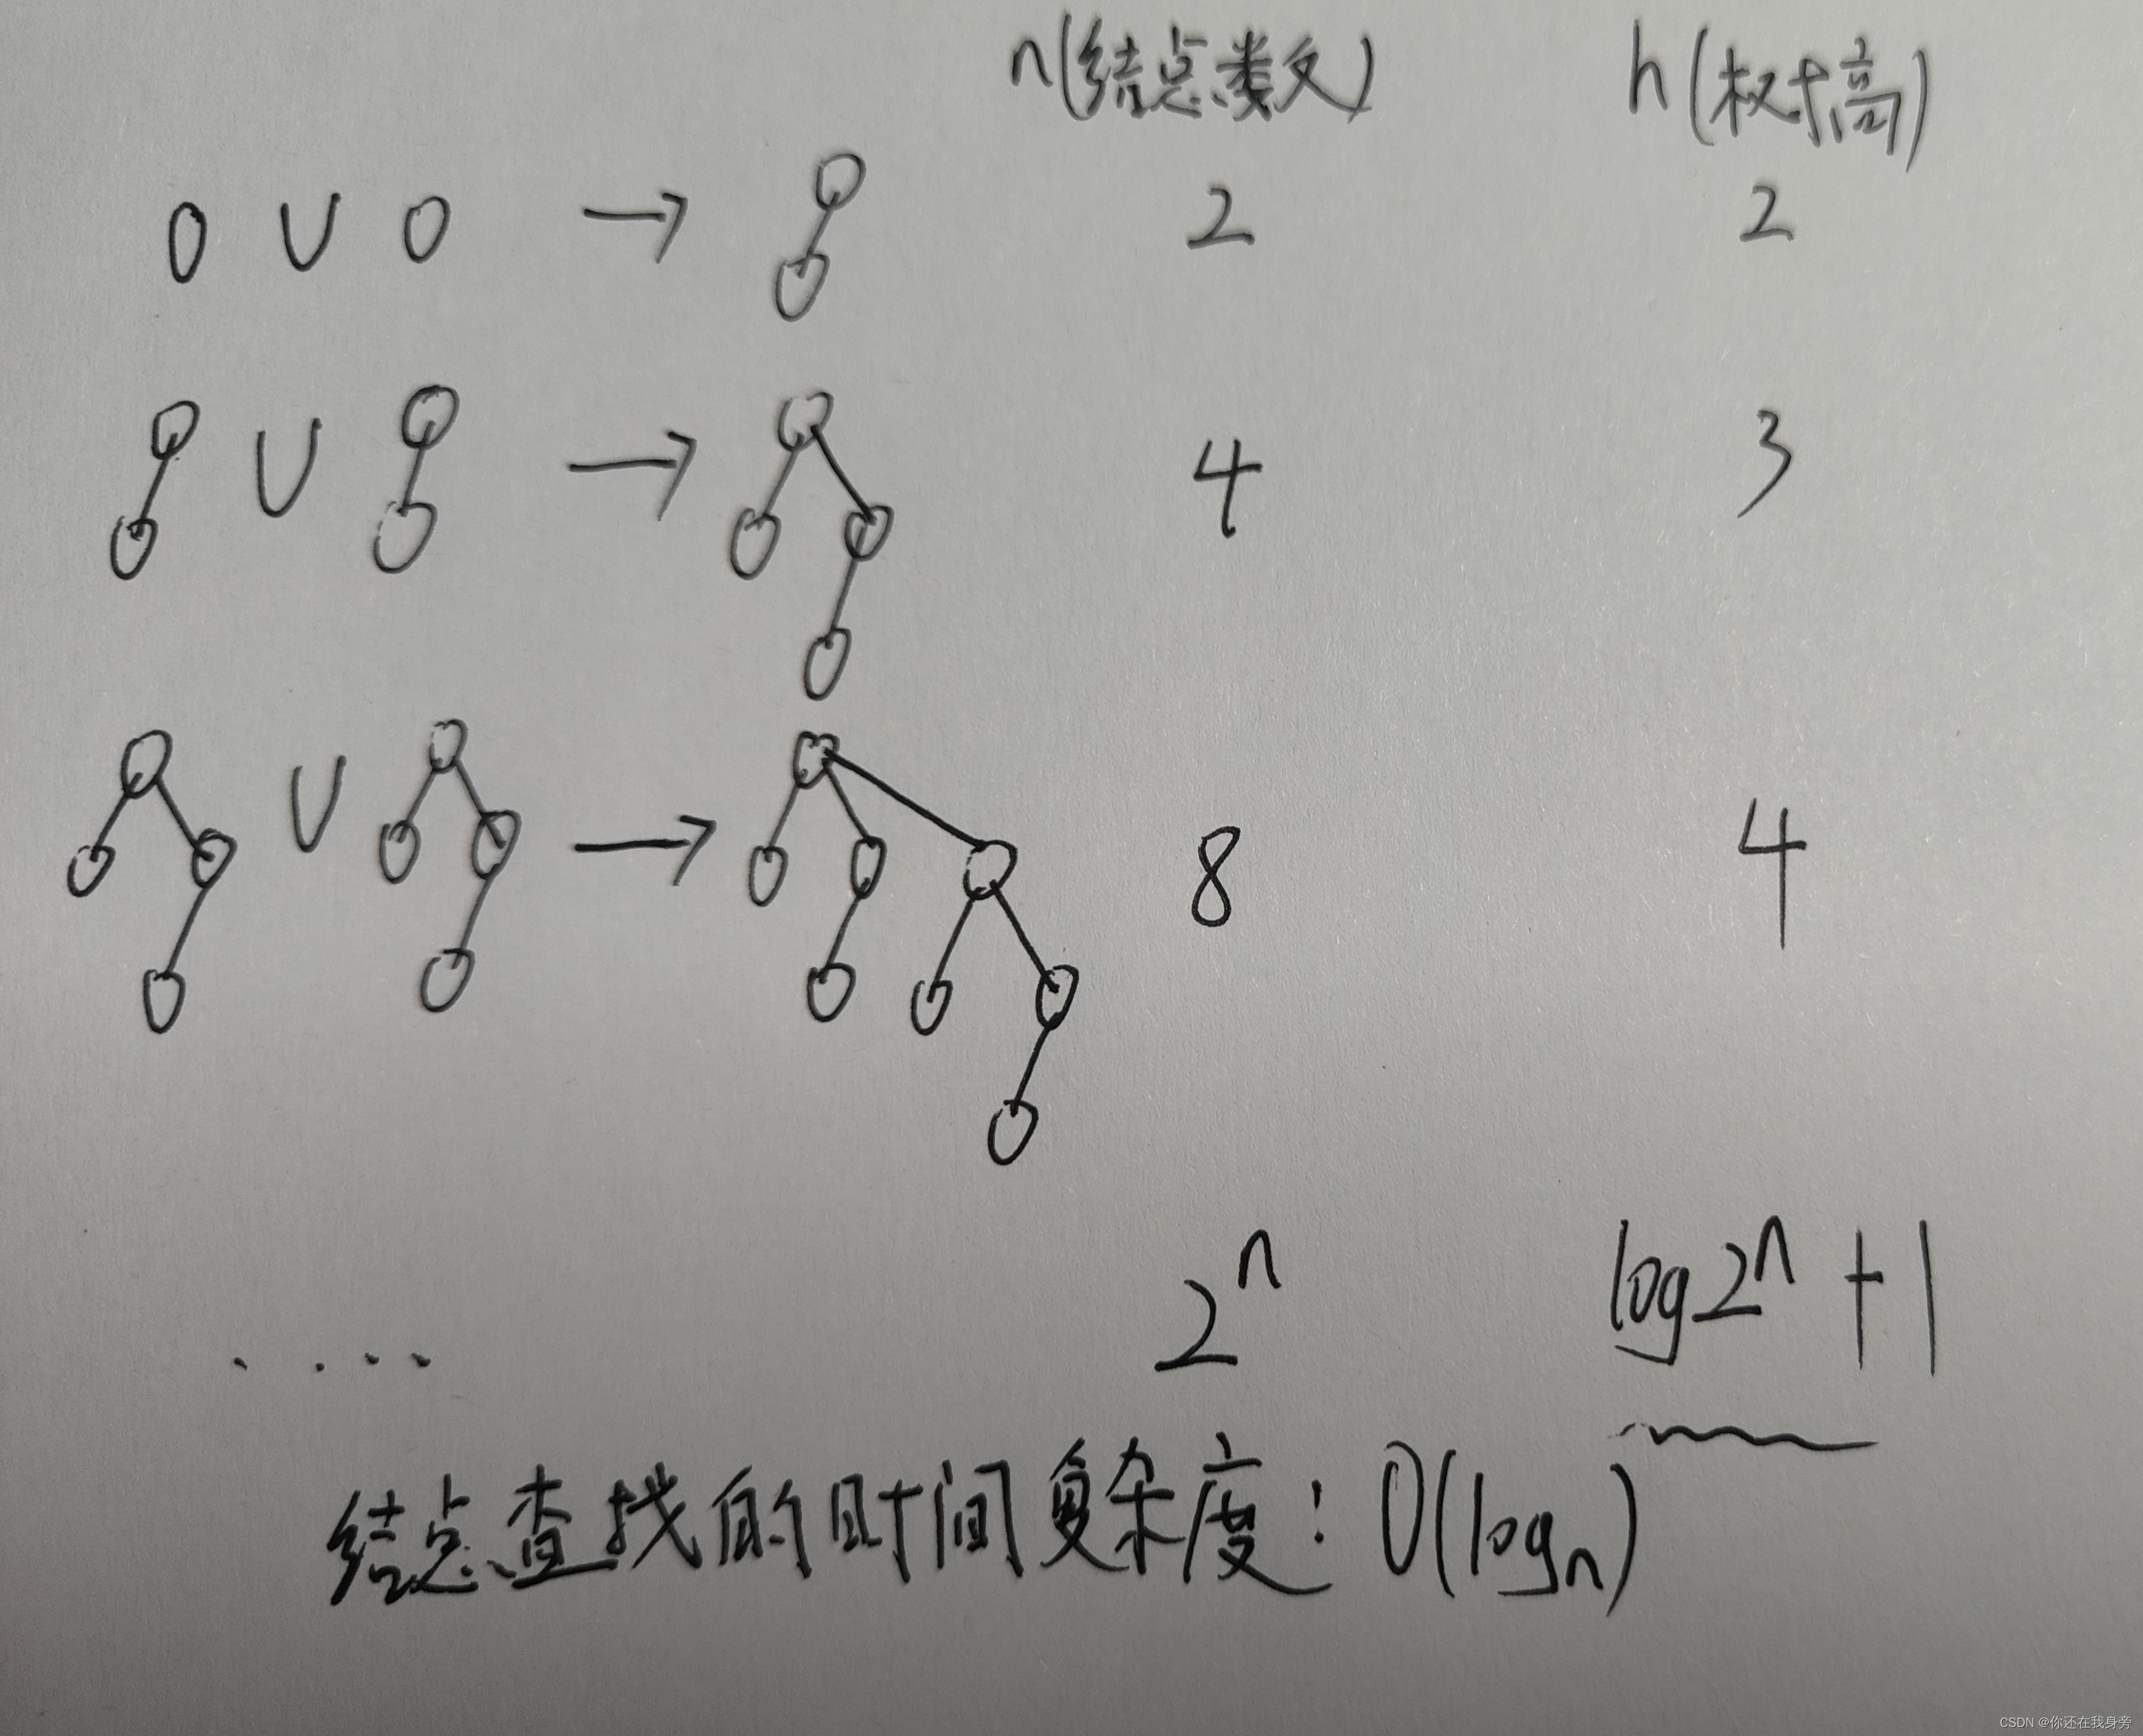 n(结点数) h(树高)
O U O → 2 2
U → 4 3
U → 8 4
2^n log2^n+1
.....
结点查找的时间复杂度:O(logn)
CSDN @你还在我身旁